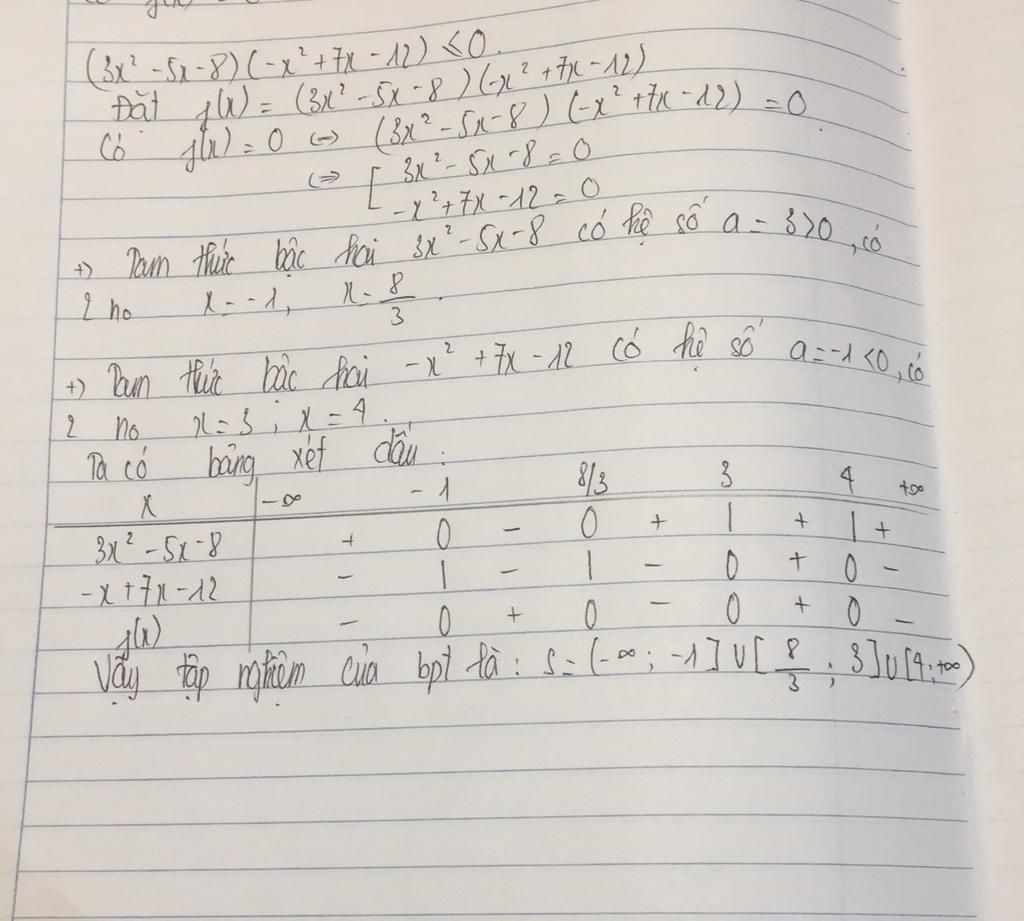 (3x² - 5x - 8)(-x² + 7x - 12) ≤ 0.
Đặt f(x) = (3x² - 5x - 8)(-x² + 7x - 12)
Có f(x) = 0 ⇔ (3x² - 5x - 8)(-x² + 7x - 12) = 0
⇔ [ 3x² - 5x - 8 = 0
-x² + 7x - 12 = 0
+) Tam thức bậc hai 3x² - 5x - 8 có hệ số a = 3 > 0, có
2 no x = -1, x = 8/3.
+) Tam thức bậc hai -x² + 7x - 12 có hệ số a = -1 < 0, có
2 no x = 3; x = 4.
Ta có bảng xét dấu:
x | -∞ -1 8/3 3 4 +∞
3x² - 5x - 8 | + 0 - 0 + | + | +
-x + 7x - 12 | - | - | - 0 + 0 -
f(x) | - 0 + 0 - 0 + 0 -
Vậy tập nghiệm của bpt là: S = (-∞; -1] ∪ [8/3; 3] ∪ [4; +∞)